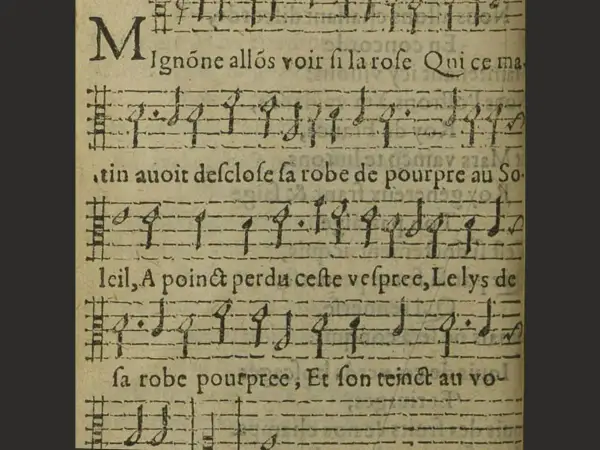 MIgnōne allōs voir ſi la roſe Qui ce ma-
tin auoit deſcloſe ſa robe de pourpre au So-
leil, A poinct perdu ceſte veſpree, Le lys de
ſa robe pourpree, Et ſon teinct au vo-